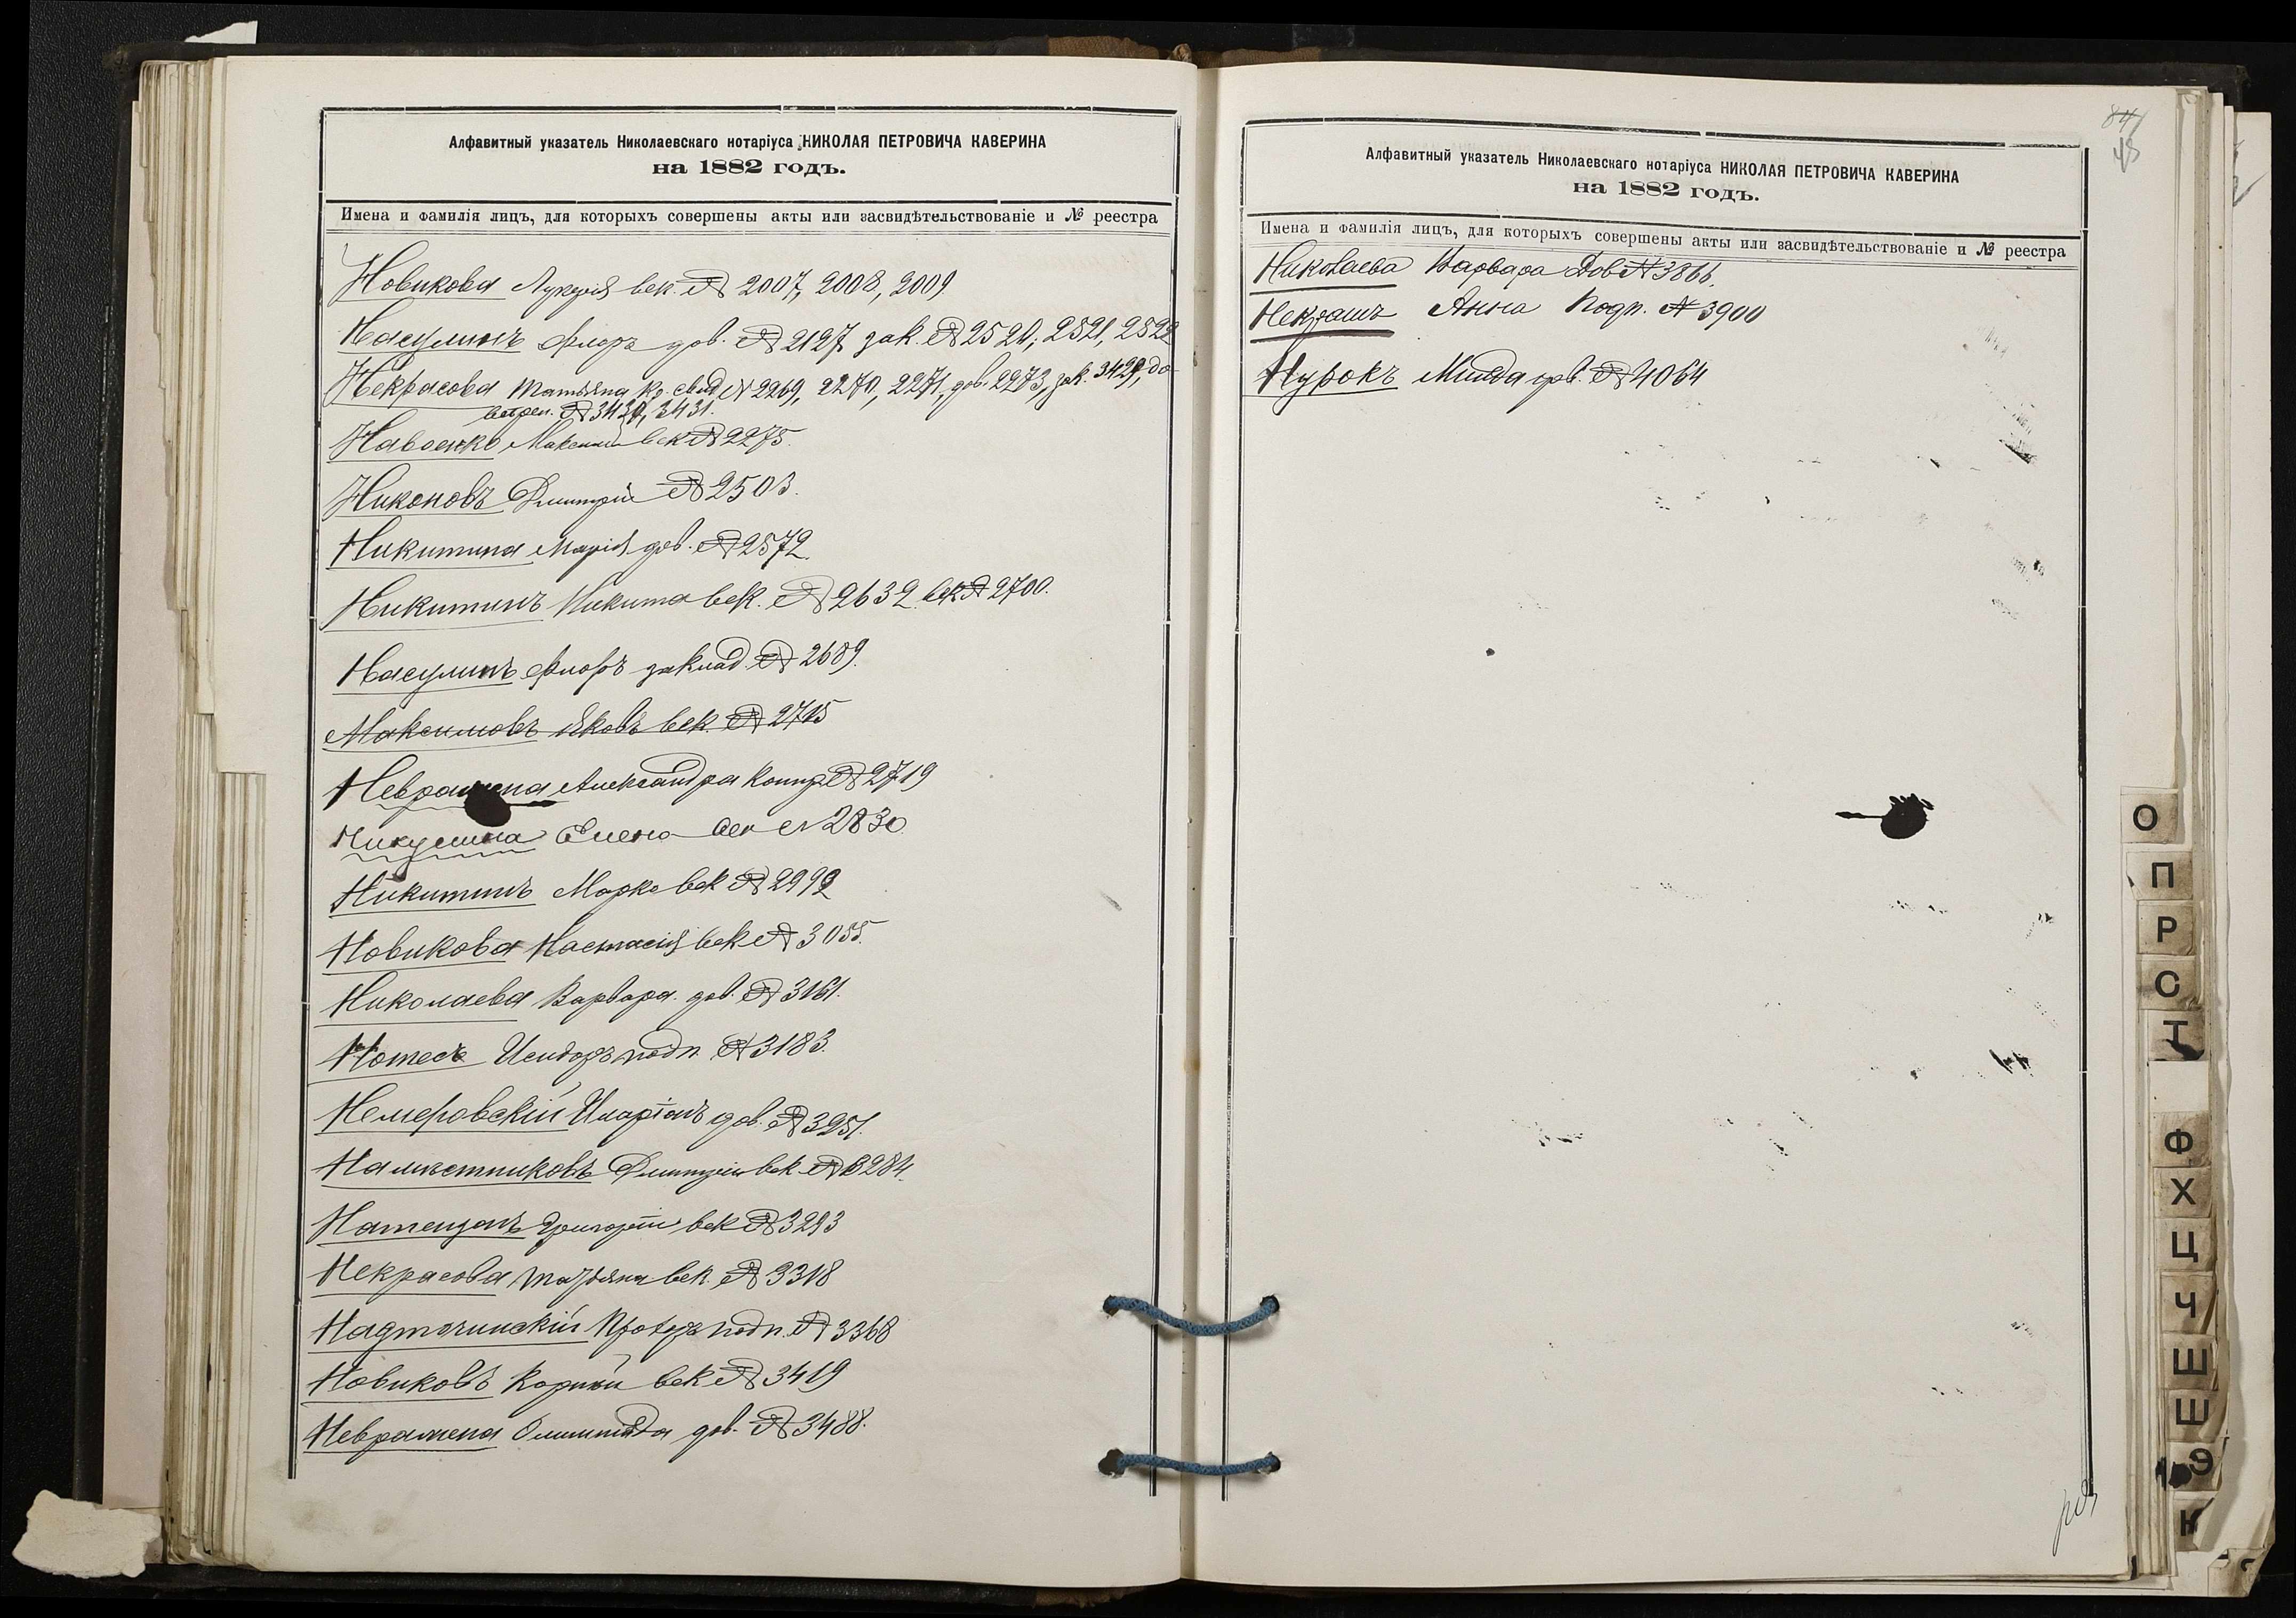 Алфавитный указатель Николаевскаго нотаріуса НИКОЛАЯ ПЕТРОВИЧА КАВЕРИНА
на 1882 годъ.
Имена и фамилія лицъ, для которыхъ совершены акты или засвидѣтельствованіе и № реестра
Новикова век. № 2007, 2008, 2009
Насулинъ Флоръ дов. № 2127 зак. № 2520, 2521, 2522
Некрасова Татьяна Кр. свид № 2269, 2270, 2271, дов. 2273, зак. 3429, до-
№ 3430, 3431.
Навоенко Максимъ век № 2275.
Никоновъ Дмитрій № 2503.
Никитина Марія дов. № 2572.
Никитинъ Никита век. № 2632 век № 2700.
Насулинъ Флоръ заклад. № 2689.
Максимовъ Яковъ век. № 2715
Неврамена Александра Копир № 2719
Никулина Елена век № 2830
Никитинъ Марко век № 2999
Новикова Настасія век № 3055.
Николаева Варвара дов. № 3161.
Нотесъ Исидоръ подп. № 3183.
Немеровскій Иларіонъ дов. № 3251.
Намѣстниковъ Дмитрій век № 3284.
Натензонъ Григорій век № 3293
Некрасова Татьяна век. № 3318
Надточинскій подп. № 3368
Новиковъ Корній век № 3419
Неврамена Олимпіада дов. № 3488.
84
43
Алфавитный указатель Николаевскаго нотаріуса НИКОЛАЯ ПЕТРОВИЧА КАВЕРИНА
на 1882 годъ.
Имена и фамилія лицъ, для которыхъ совершены акты или засвидѣтельствованіе и № реестра
Николаева Варвара Дов № 3866.
Некрашъ Анна подп. № 3900
Нурокъ Минда дов. № 4064
О
П
Р
С
Т
Ф
Х
Ц
Ч
Ш
Щ
Э